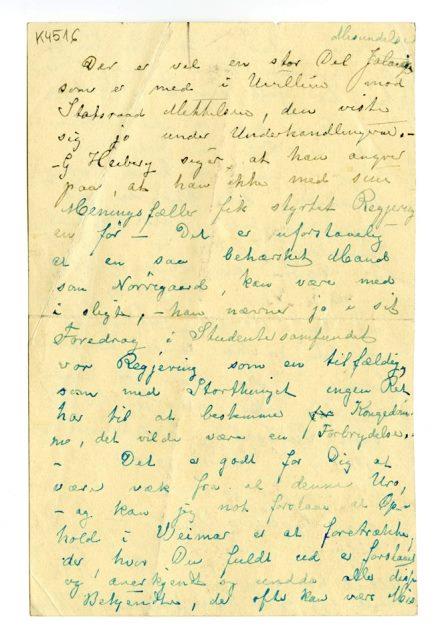 K4516
Misundelse
Der er vel en stor Del Jalousi
som er med i Uvillien mod
Statsraad Mikkelsen, den viste
sig jo under Underhandlingerne.-
- G Heiberg siger, at han angrer
paa, at han ikke med sine
Meningsfæller fik styrtet Regjering
en før - Det er uforstaaelig
at en saa behærsket Mand
som Nörregaard, kan være med
i sligt, - han nævner jo i sit
Foredrag i Studentersamfundet
vor Regjering som en tilfældig,
som med Storthinget ingen Ret
har til at bestemme Kongedöm-
me, det vilde være en Forbrydelse.-
- Det er godt for Dig at
være væk fra al denne Uro,
- og kan jeg nok forstaa at Op-
hold i Weimar er at foretrække,
der, hvor Du fuldt ud er forstaaet
og anerkjendt og undda alle disse
Bekjendte, de ofte kan være Mis